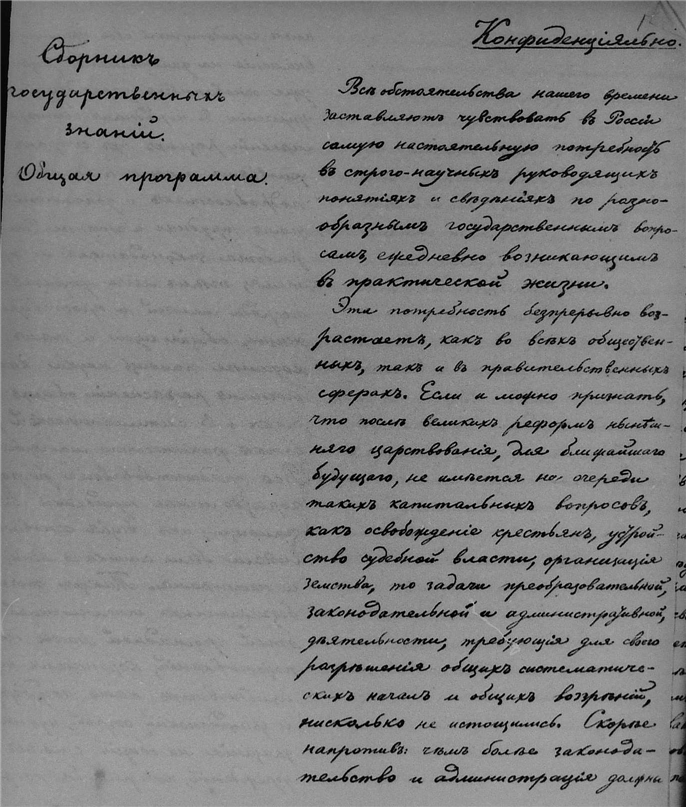 Конфиденціяльно.
Сборникъ
государственныхъ
знаній.
Общая программа.
Всѣ обстоятельства нашего времени
заставляютъ чувствовать въ Россіи
самую настоятельную потребность
въ строго-научныхъ руководящихъ
понятіяхъ и свѣдѣніяхъ по разно-
образнымъ государственнымъ вопро-
самъ, ежедневно возникающимъ
въ практической жизни.
Эта потребность безпрерывно воз-
растаетъ, какъ во всѣхъ обществен-
ныхъ, такъ и въ правительственныхъ
сферахъ. Если и можно признать,
что послѣ великихъ реформъ нынѣш-
няго царствованія, для ближайшаго
будущаго, не имѣется на очереди
такихъ капитальныхъ вопросовъ,
какъ освобожденіе крестьянъ, устрой-
ство судебной власти, организація
земства, то задачи преобразовательной,
законодательной и административной,
дѣятельности, требующія для своего
разрѣшенія общихъ систематиче-
скихъ началъ и общихъ воззрѣній,
нисколько не истощились. Скорѣе
напротивъ: чѣмъ болѣе законода-
тельство и администрація должны